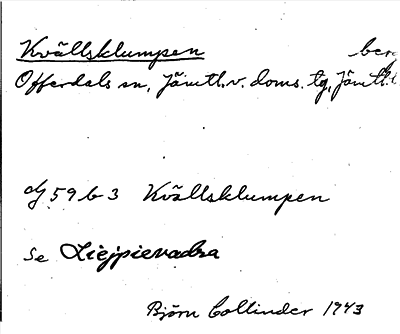 Kvällsklumpen berg
Offerdals sn, Jämtl. v. doms. tg, Jämtl. l
dj 59 b 3 Kvällsklumpen
Se Liejpievadsa
Björn Collinder 1943